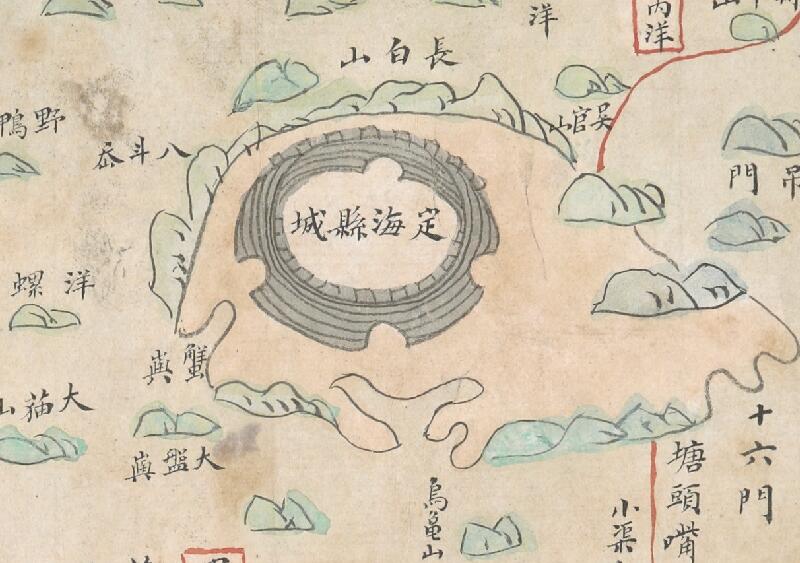 洋
內洋
長白山
吳官山
野鴨
八斗岙
吊門
定海縣城
洋螺
蟹嶼
大貓山
大盤嶼
十六門
塘頭嘴
烏龜山
小渠